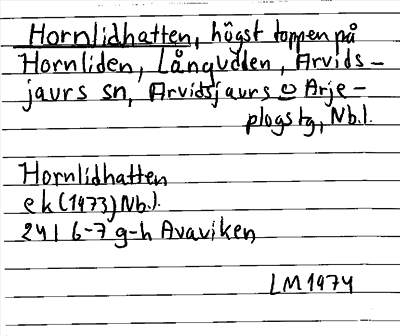 Hornlidhatten, högst toppen på
Hornliden, Långudden, Arvids-
jaurs sn, Arvidsjaurs o Arje-
plogs tg, Nb.l.
Hornlidhatten
ek (1973) Nb.l.
24I 6-7 g-h Avaviken
LM 1974